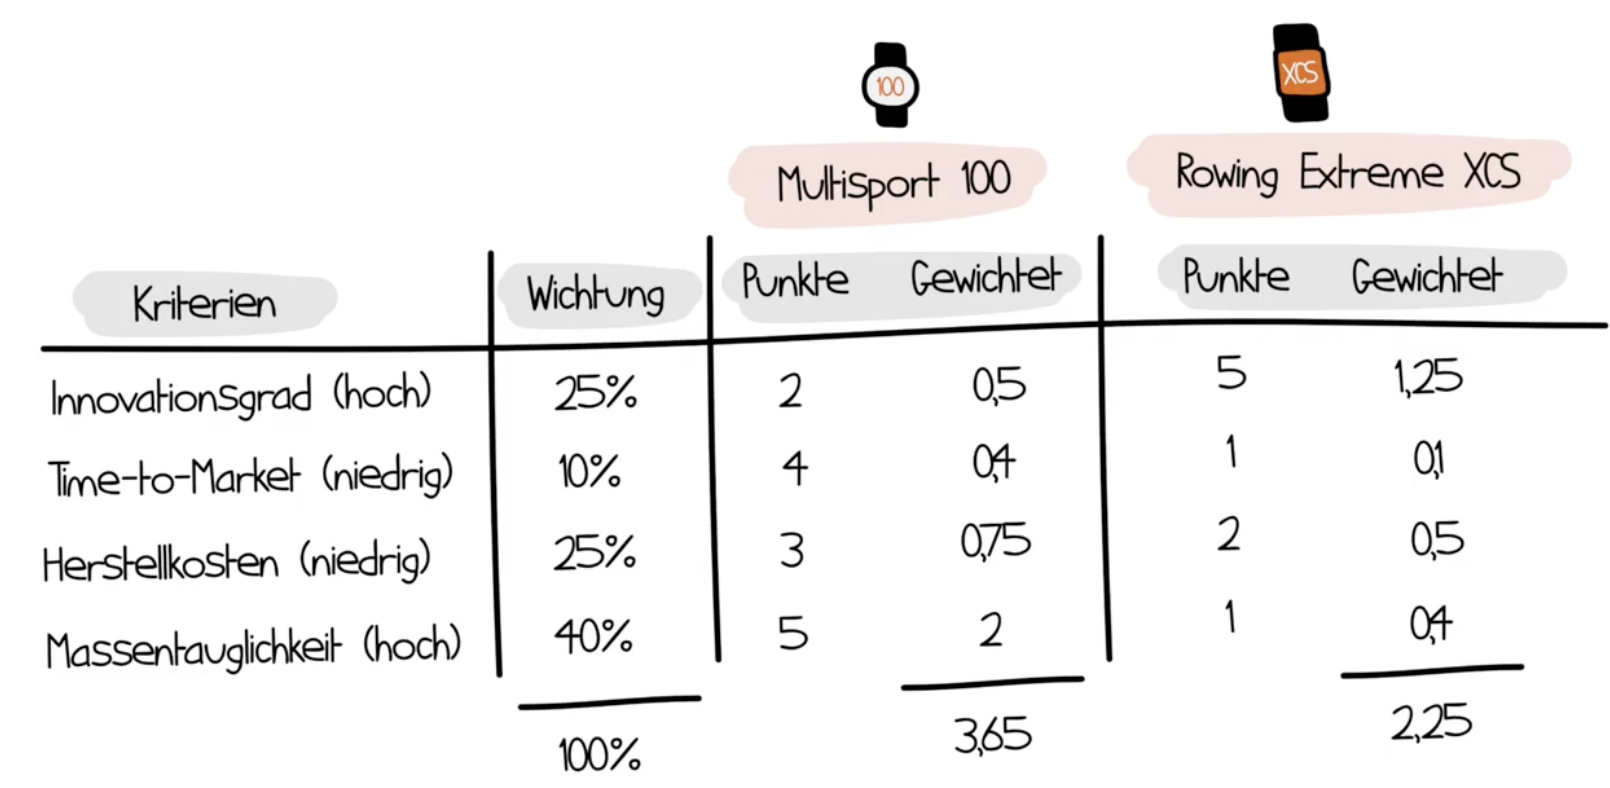 100
XCS
Multisport 100
Rowing Extreme XCS
Kriterien Wichtung Punkte Gewichtet Punkte Gewichtet
Innovationsgrad (hoch) 25% 2 0,5 5 1,25
Time-to-Market (niedrig) 10% 4 0,4 1 0,1
Herstellkosten (niedrig) 25% 3 0,75 2 0,5
Massentauglichkeit (hoch) 40% 5 2 1 0,4
100% 3,65 2,25